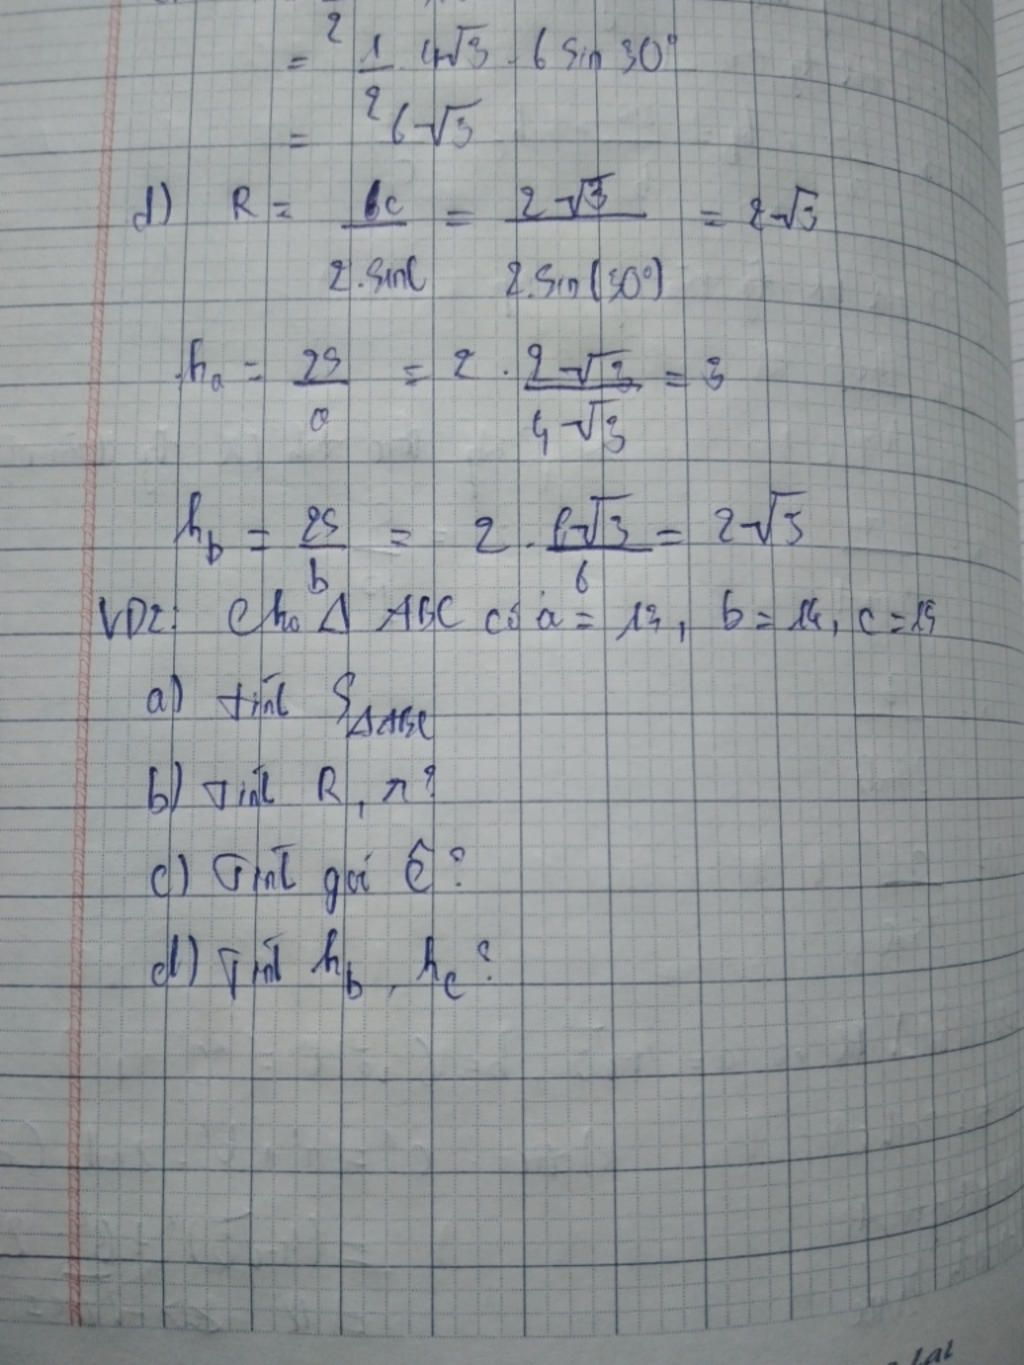 2
= 1/2 . 4√3 . 6 sin 30°
= 6√3
d) R = c / 2.sinC = 2√3 / 2.Sin(30°) = 2√3
ha = 2S/a = 2 . 2√3 / 4√3 = 3
hb = 2S/b = 2 . 6√3 / 6 = 2√3
VD2: Cho Δ ABC có a = 13, b = 14, c = 15
a) Tính SΔABC
b) Tính R, r?
c) Tính gói Ĉ?
d) Tính hb, hc?